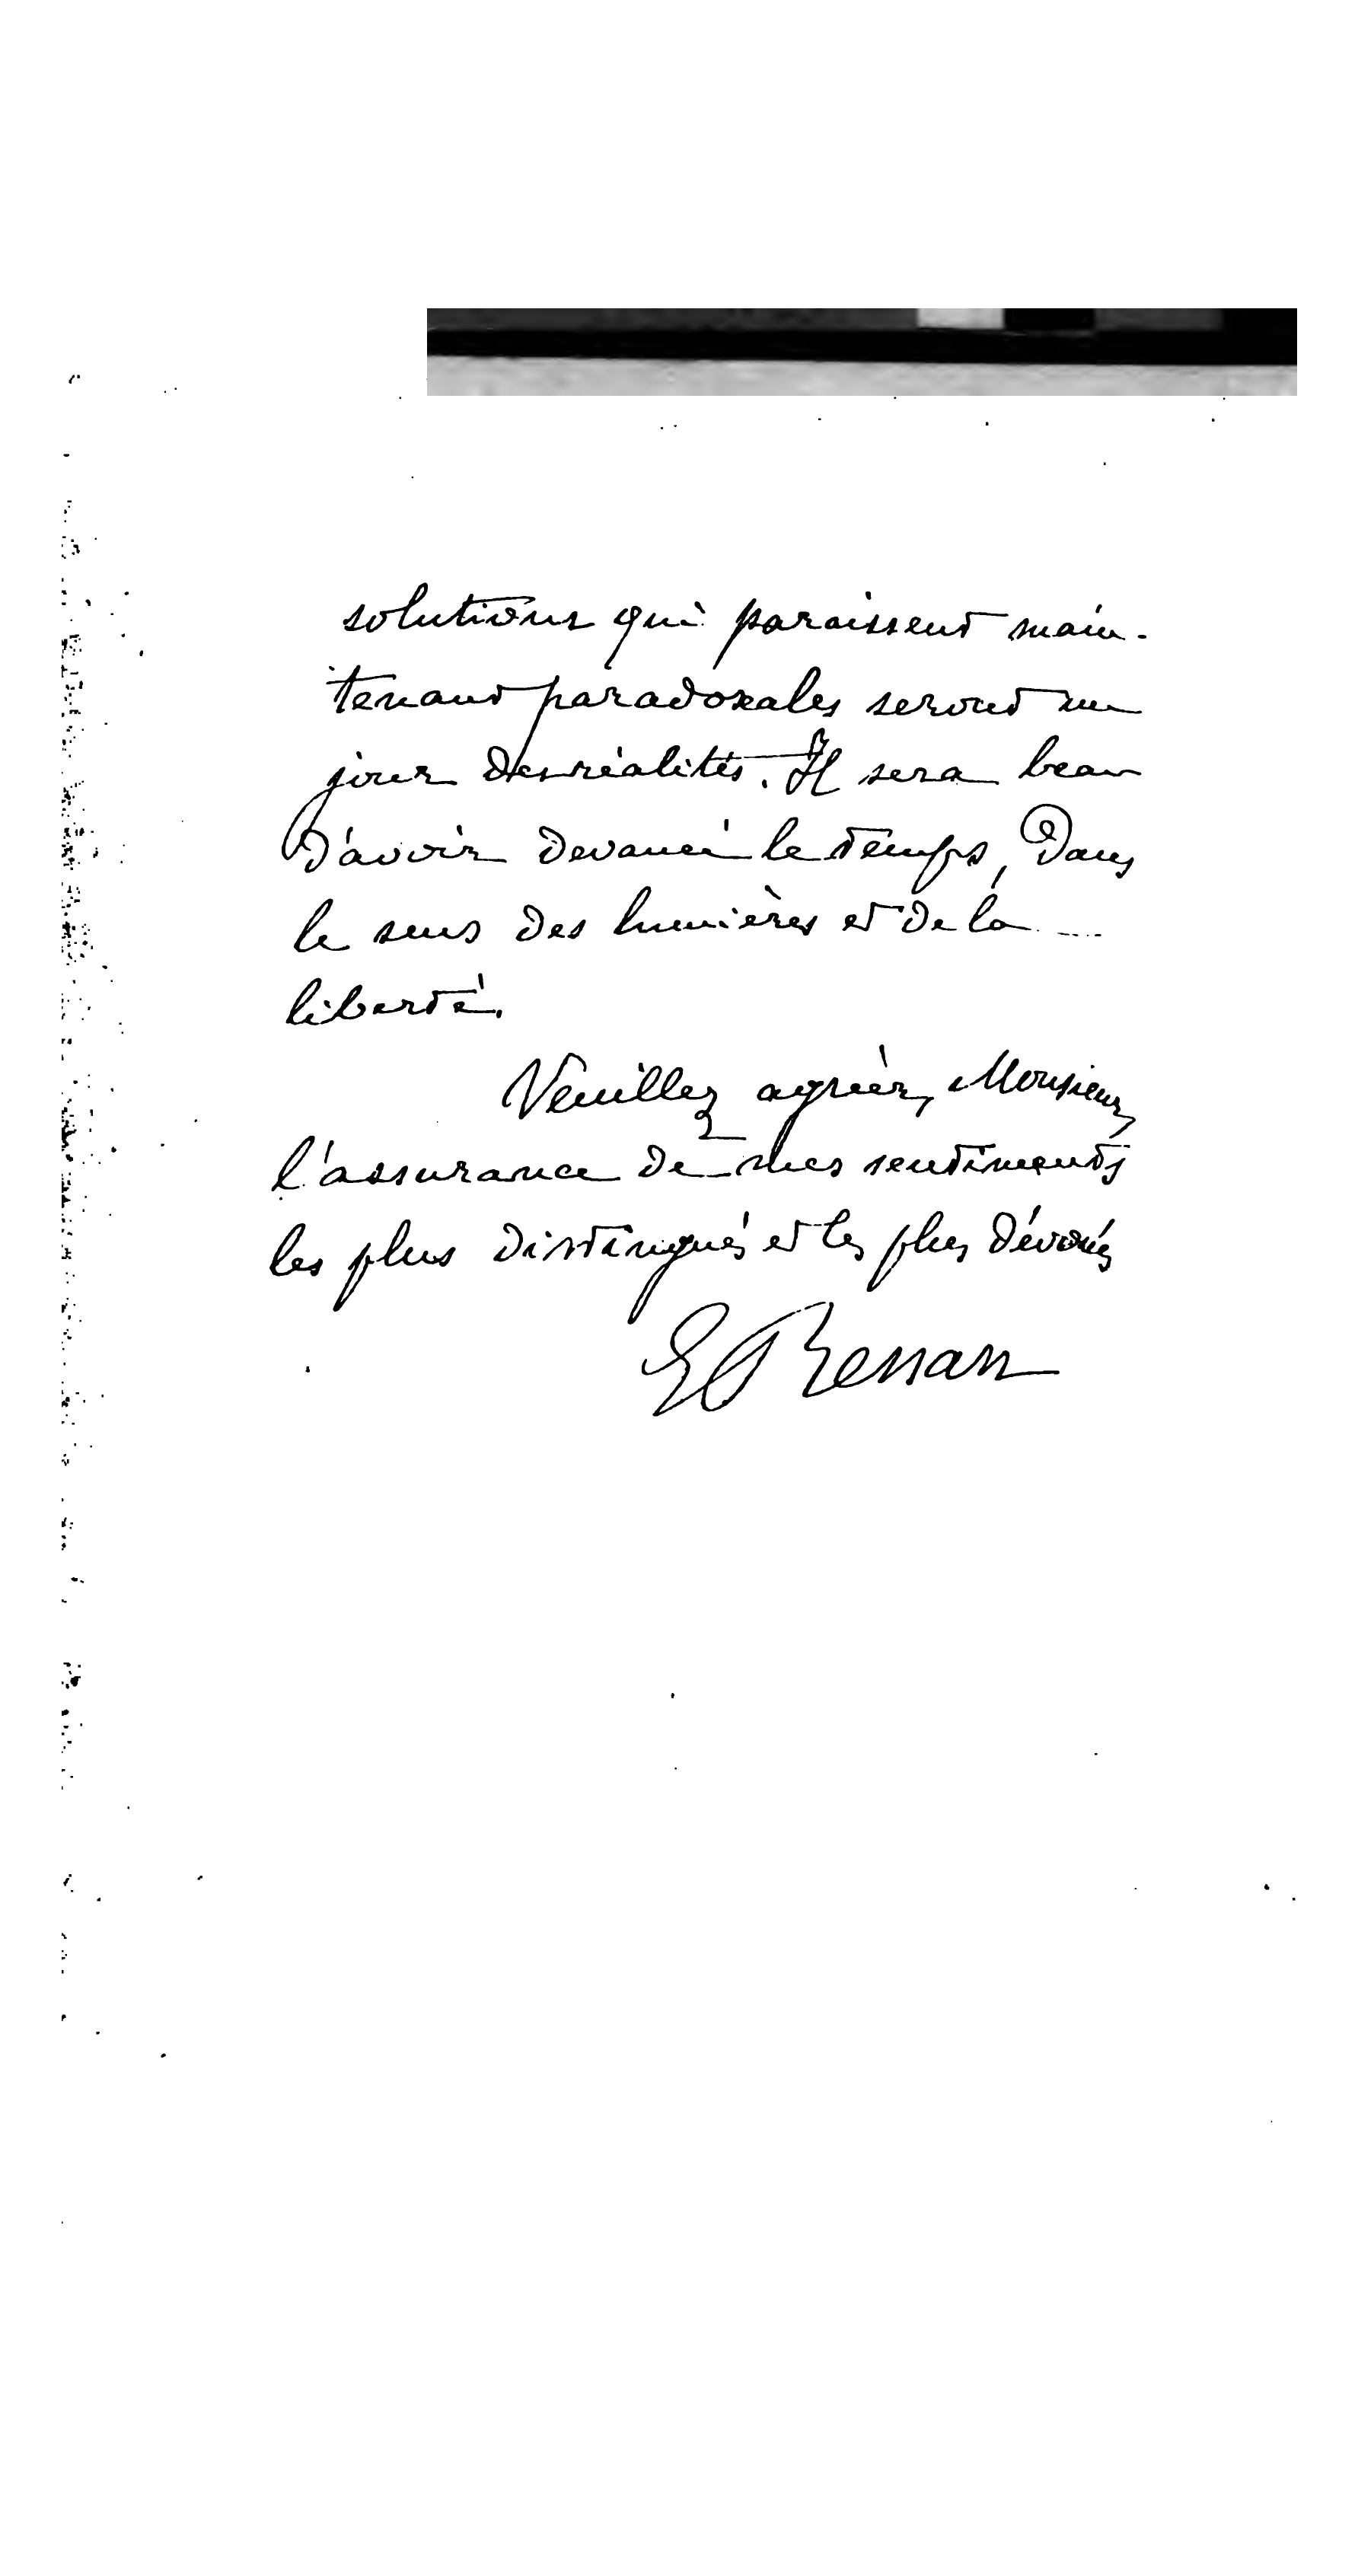 solutions qui paraissent main-
tenant paradoxales seront un
jour des réalités. Il sera beau
d'avoir devancé le temps, dans
le sens des lumières et de la
liberté.
Veuillez agréer, Monsieur,
l'assurance de mes sentiments
les plus distingués et les plus dévoués
E Renan